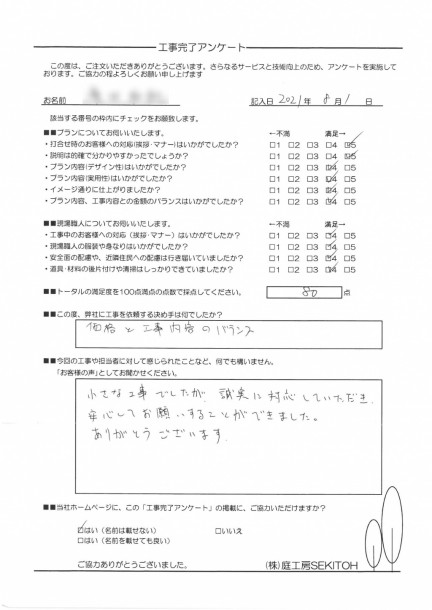 工事完了アンケート
この度は、ご注文いただきありがとうございます。さらなるサービスと技術向上のため、アンケートを実施して
おります。ご協力の程よろしくお願い申し上げます
お名前
記入日 2021 年 8 月 1 日
該当する番号の枠内にチェックをお願致します。
■■プランについてお伺いいたします。 ←不満 満足→
・打合せ時のお客様への対応(挨拶・マナー)はいかがでしたか? □1 □2 □3 □4 □5
・説明は的確で分かりやすかったでしょうか? □1 □2 □3 □4 □5
・プラン内容(デザイン性)はいかがでしたか? □1 □2 □3 □4 □5
・プラン内容(実用性)はいかがでしたか? □1 □2 □3 □4 □5
・イメージ通りに仕上がりましたか? □1 □2 □3 □4 □5
・プラン内容、工事内容との金額のバランスはいかがでしたか? □1 □2 □3 □4 □5
■■現場職人についてお伺いいたします。 ←不満 満足→
・工事中のお客様への対応(挨拶・マナー)はいかがでしたか? □1 □2 □3 □4 □5
・現場職人の服装や身なりはいかがでしたか? □1 □2 □3 □4 □5
・安全面の配慮や、近隣住民への配慮は行き届いていましたか? □1 □2 □3 □4 □5
・道具・材料の後片付けや清掃はしっかりできていましたか? □1 □2 □3 □4 □5
■■トータルの満足度を100点満点の点数で採点してください。 80 点
■■この度、弊社に工事を依頼する決め手は何でしたか?
価格と工事内容のバランス
■■今回の工事や担当者に対して感じられたことなど、何でも構いません。
「お客様の声」としてお聞かせください。
小さな工事でしたが、誠実に対応していただき、
安心してお願いすることができました。
ありがとうございます。
■■当社ホームページに、この「工事完了アンケート」の掲載に、ご協力いただけますか?
☑はい(名前は載せない) □いいえ
□はい(名前を載せても良い)
ご協力ありがとうございました。
(株)庭工房SEKITOH